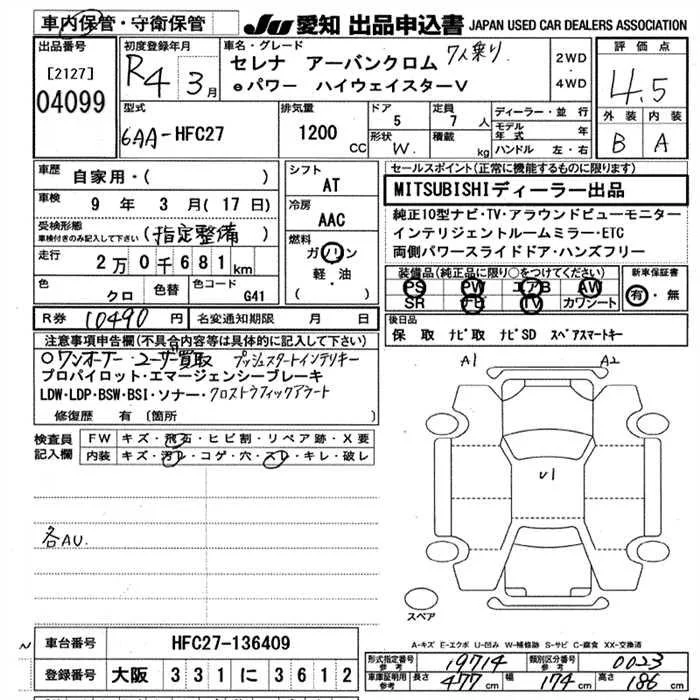 車内保管・守衛保管
JU 愛知 出品申込書 JAPAN USED CAR DEALERS ASSOCIATION
出品番号
[2127]
04099
初度登録年月
R4 3月
車名・グレード
セレナ アーバンクロム 7人乗り
eパワー ハイウェイスターV
2WD
・
4WD
評価点
4.5
外装 内装
B A
型式
6AA-HFC27
排気量
1200
CC
ドア
5
形状
W.
定員
7 人
積載
kg
ディーラー・並行
モデル年式 年
ハンドル 左・右
車歴
自家用・( )
車検
9 年 3 月( 17 日)
受検形態
車検付きのみ記入して下さい
(指定整備)
走行
2万0千681km
色
クロ
色替
色コード
G41
シフト
AT
冷房
AAC
燃料
ガソリン
軽・油
( )
セールスポイント(正常に機能するものに限ります)
MITSUBISHIディーラー出品
純正10型ナビ・TV・アラウンドビューモニター
インテリジェントルームミラー・ETC
両側パワースライドドア・ハンズフリー
装備品(純正品に限り○をつけてください)
PS PW エアB AW
SR ナビ TV カワシート
新車保証書
有・無
R券 10490 円
名変通知期限 月 日
後日品
保 取 ナビ取 ナビSD スペアスマートキー
注意事項申告欄(不具合内容等は具体的に記入して下さい)
○ワンオーナー・ユーザー買取 プッシュスタートインテリキー
プロパイロット・エマージェンシーブレーキ
LDW・LDP・BSW・BSI・ソナー・クロストラフィックアラート
修復歴 有 〔箇所
検査員
記入欄
FW キズ・飛石・ヒビ割・リペア跡・X要
内装 キズ・汚レ・コゲ・穴・スレ・キレ・破レ
各AU.
A1
A2
U1
スペア
A-キズ E-エクボ U-凹み W-補修跡 S-サビ C-腐食 XX-交換済
車台番号
HFC27-136409
登録番号
大阪 331 に 3612
形式指定番号
参考
19714
類別区分番号
参考
0023
車庫証明用
参考
長さ 477 cm
幅 174 cm
高さ 186 cm